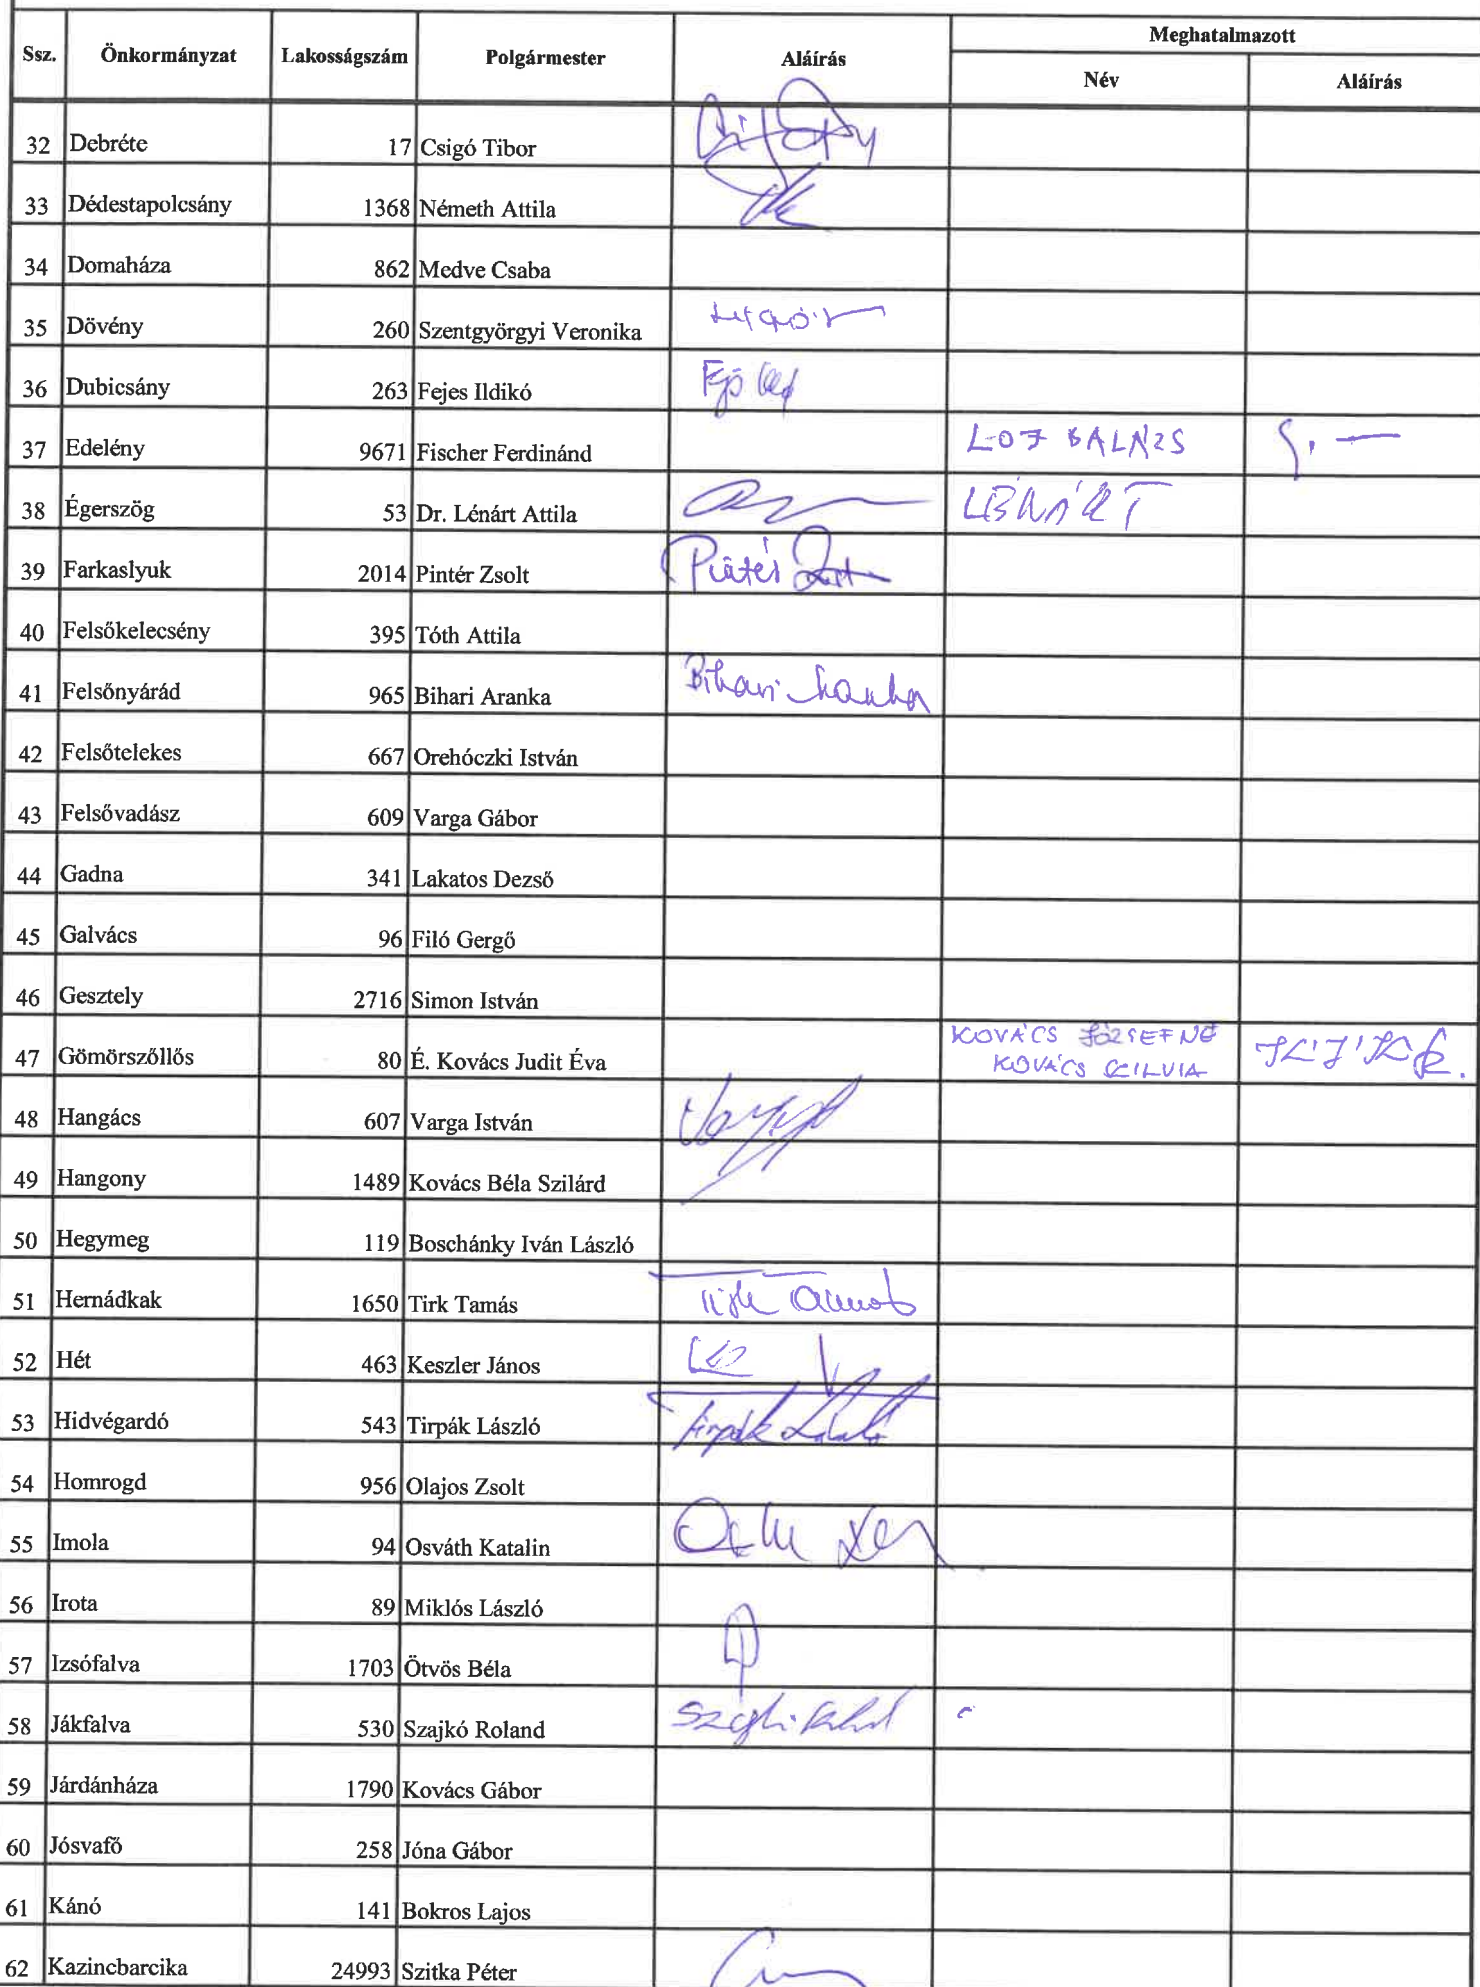 Ssz. Önkormányzat Lakosságszám Polgármester Aláírás Meghatalmazott
Név Aláírás
32 Debréte 17 Csigó Tibor
33 Dédestapolcsány 1368 Németh Attila
34 Domaháza 862 Medve Csaba
35 Dövény 260 Szentgyörgyi Veronika
36 Dubicsány 263 Fejes Ildikó
37 Edelény 9671 Fischer Ferdinánd BALÁZS
38 Égerszög 53 Dr. Lénárt Attila LÉNÁRT
39 Farkaslyuk 2014 Pintér Zsolt Pintér Zsolt
40 Felsőkelecsény 395 Tóth Attila
41 Felsőnyárád 965 Bihari Aranka Bihari Aranka
42 Felsőtelekes 667 Orehóczki István
43 Felsővadász 609 Varga Gábor
44 Gadna 341 Lakatos Dezső
45 Galvács 96 Filó Gergő
46 Gesztely 2716 Simon István
47 Gömörszőllős 80 É. Kovács Judit Éva KOVÁCS JÓZSEFNÉ
KOVÁCS SZILVIA
48 Hangács 607 Varga István
49 Hangony 1489 Kovács Béla Szilárd
50 Hegymeg 119 Boschánky Iván László
51 Hernádkak 1650 Tirk Tamás Tirk Tamás
52 Hét 463 Keszler János
53 Hidvégardó 543 Tirpák László Tirpák László
54 Homrogd 956 Olajos Zsolt
55 Imola 94 Osváth Katalin
56 Irota 89 Miklós László
57 Izsófalva 1703 Ötvös Béla
58 Jákfalva 530 Szajkó Roland
59 Járdánháza 1790 Kovács Gábor
60 Jósvafő 258 Jóna Gábor
61 Kánó 141 Bokros Lajos
62 Kazincbarcika 24993 Szitka Péter